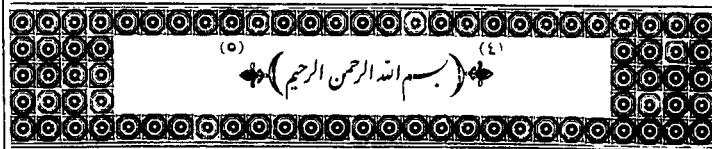 (٤) (٥)
(بسم الله الرحمن الرحيم)